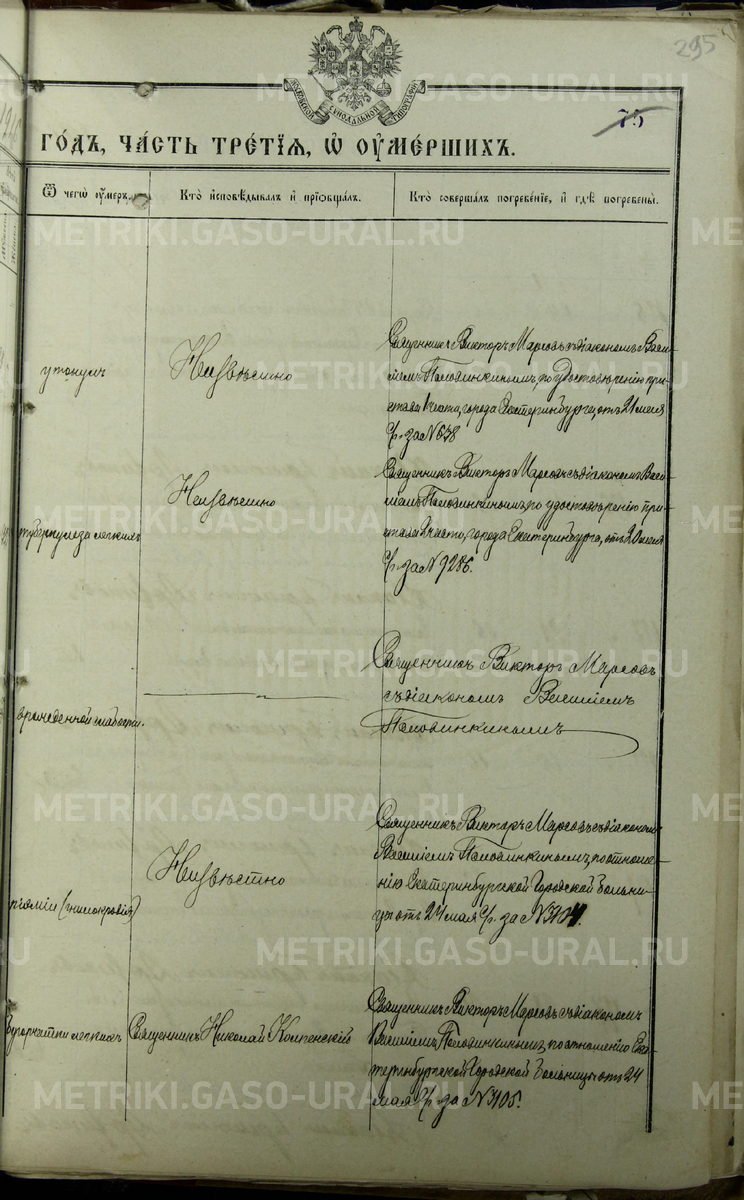 295
75
МОСКОВСКОЙ СѴНОДАЛЬНОЙ ТИПОГРАФІИ
ГО́ДЪ, ЧА́СТЬ ТРЕ́ТІѦ, Ѡ҆ ОУ҆МЕ́РШИХЪ.
Ѿ чегѡ̀ оу҆́меръ.
Кто̀ и҆сповѣ́дывалъ и҆ прїѡбща́лъ.
Кто̀ соверша́лъ погребе́нїе, и҆ гдѣ̀ погребены̀.
утонулъ
Неизвѣстно
Священникъ Викторъ Марсовъ съ діакономъ Васи-
ліемъ Половинкинымъ, по удостовѣренію при-
става 1 части, города Екатеринбурга, отъ 21 мая
с/г. за № 638
туберкулеза легкихъ
Неизвѣстно
Священникъ Викторъ Марсовъ съ діакономъ Васи-
ліемъ Половинкинымъ по удостовѣренію при-
става 2 части, города Екатеринбурга, отъ 20 мая
с/г. за № 9286.
врожденной слабости.
Священникъ Викторъ Марсовъ
съ діакономъ Василіемъ
Половинкинымъ
піэміи (гнилокровія)
Неизвѣстно
Священникъ Викторъ Марсовъ съ діакономъ
Василіемъ Половинкинымъ, по отноше-
нію Екатеринбургской Городской Больни-
цы отъ 24 мая с/г. за № 3104.
Бугорчатки легкихъ
Священникъ Николай
Священникъ Викторъ Марсовъ съ діакономъ
Василіемъ Половинкинымъ, по отношенію Ека-
теринбургской Городской Больницы отъ 24
мая с/г. за № 3105.
METRIKI.GASO-URAL.RU